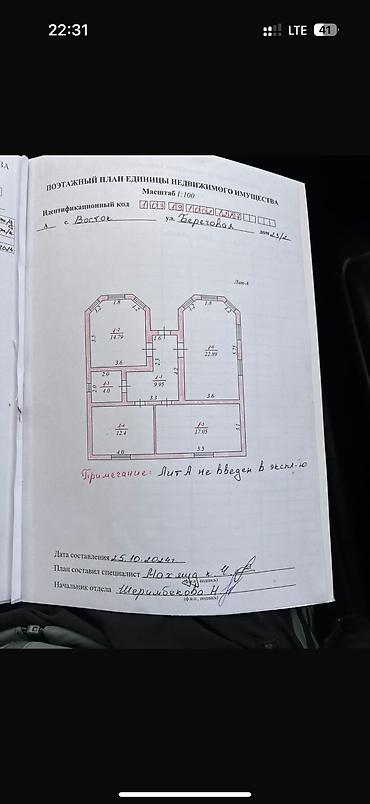 22:31
LTE 41
ПОЭТАЖНЫЙ ПЛАН ЕДИНИЦЫ НЕДВИЖИМОГО ИМУЩЕСТВА
Масштаб 1:100
Идентификационный код 1 03 19 1002 1287
с. Восток ул. Береговая дом 23/2
Лит-А
1.8
1.8
1-2
14.79
1.6
1-6
22.89
3.6
2.0
1-3
4.0
1-1
9.95
3.3
3.6
1-4
12.4
1-5
17.05
4.0
5.5
Примечание: Лит А не введен в экспл-ю
Дата составления 25.10.2024г
План составил специалист
(ф.и.о., подпись)
Начальник отдела Шеримбекова Н.
(ф.и.о., подпись)